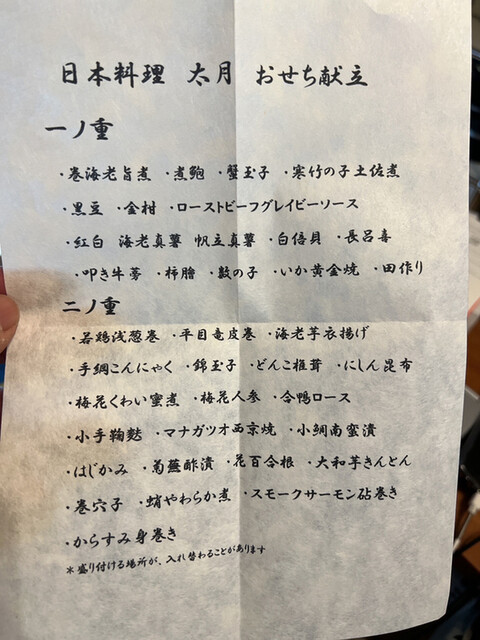 日本料理 太月 おせち献立
一ノ重
・巻海老旨煮 ・煮鮑 ・蟹玉子 ・寒竹の子土佐煮
・黒豆 ・金柑 ・ローストビーフグレイビーソース
・紅白 海老真薯 帆立真薯 ・白倍貝 ・長呂喜
・叩き牛蒡 ・柿膾 ・数の子 ・いか黄金焼 ・田作り
二ノ重
・若鶏浅葱巻 ・平目竜皮巻 ・海老芋衣揚げ
・手綱こんにゃく ・錦玉子 ・どんこ椎茸 ・にしん昆布
・梅花くわい蜜煮 ・梅花人参 ・合鴨ロース
・小手鞠麩 ・マナガツオ西京焼 ・小鯛南蛮漬
・はじかみ ・菊蕪酢漬 ・花百合根 ・大和芋きんとん
・巻穴子 ・蛸やわらか煮 ・スモークサーモン砧巻き
・からすみ身巻き
＊盛り付ける場所が、入れ替わることがあります